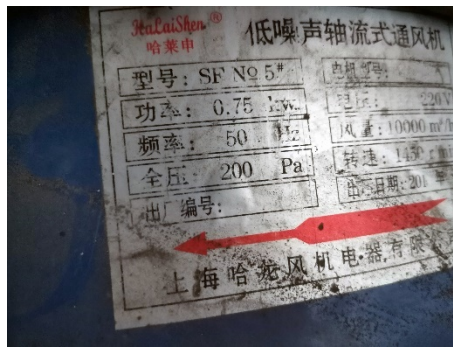 HaLaiShen®
哈莱申
低噪声轴流式通风机
型号: SF №5#
功率: 0.75 kw
频率: 50 Hz
全压 200 Pa
出厂编号:
电压: 220V
风量: 10000 m³/h
转速: 1450 r
出厂日期: 201
上海哈龙风机电器有限